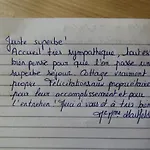 Juste superbe!
Accueil très sympathique, tout est
bien pensé pour que l'on passe un
superbe séjour. Cottage vraiment
propre. Félicitations aux propriétaires
pour leur accomplissement et pour
l'entretien! Merci à vous et à très bien